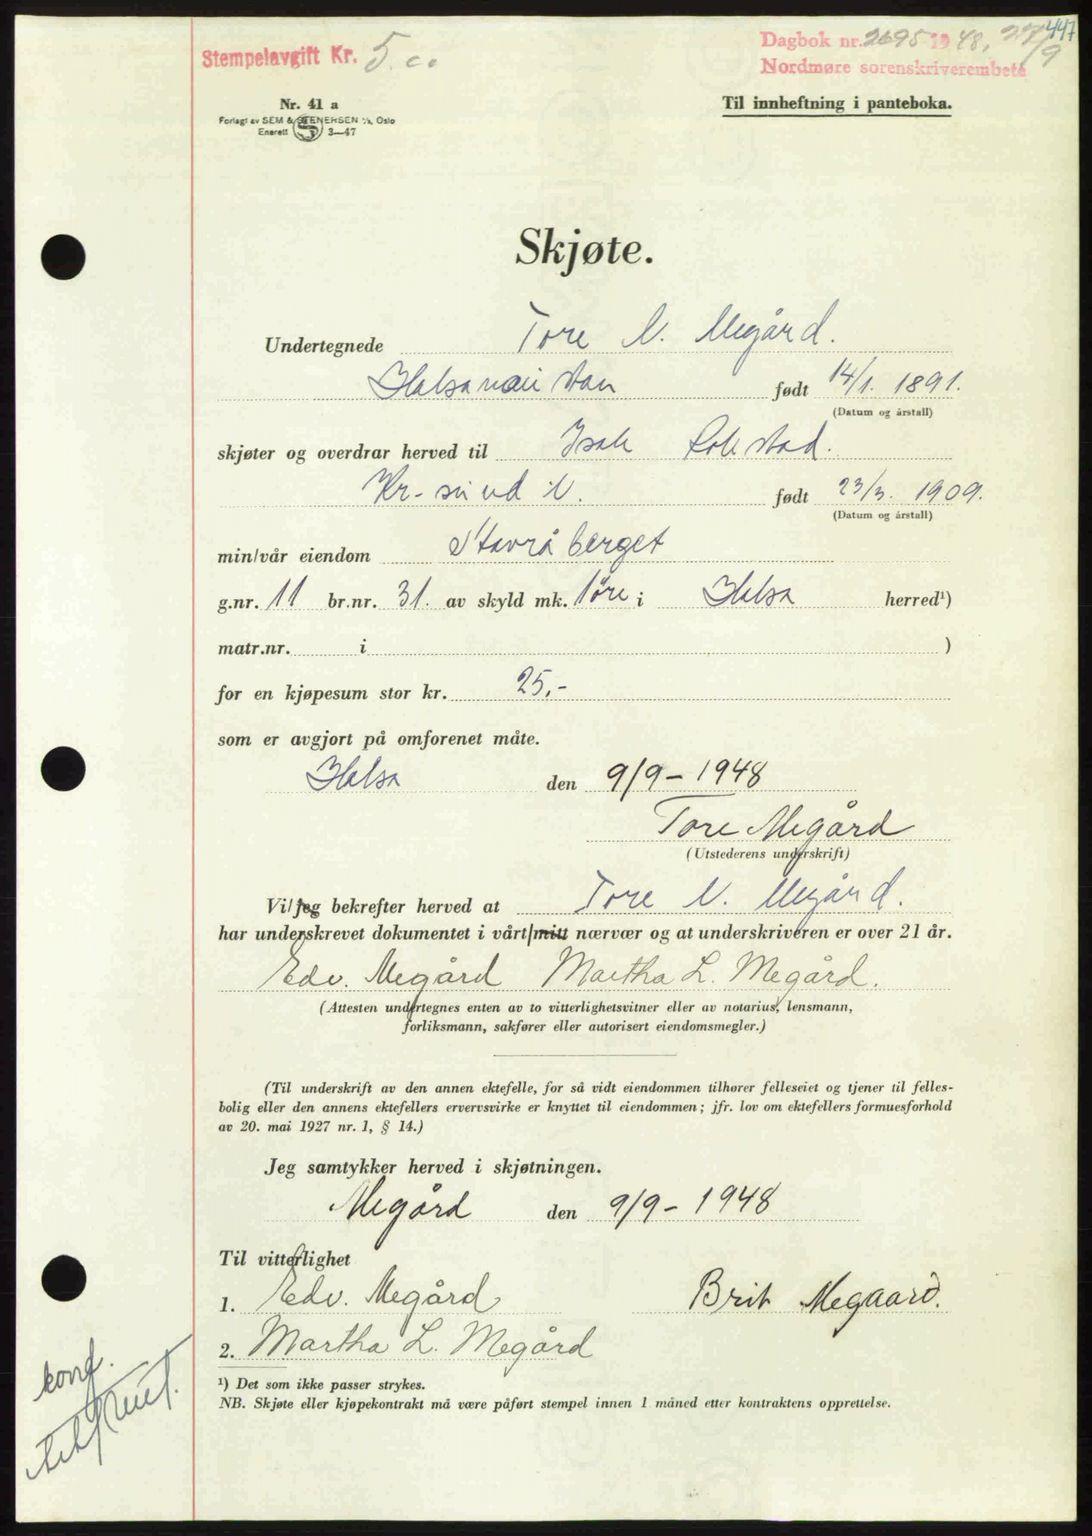 447
Stempelavgift Kr. 5.00
Dagbok nr. 2695 1948, 27/9
Nordmøre sorenskriverembete
Nr. 41 a
Forlagt av SEM & STENERSEN A/S, Oslo
Enerett S 3—47
Til innheftning i panteboka.
Skjøte.
Undertegnede Tore N. Megård.
Halsanaustan født 14/1. 1891.
(Datum og årstall)
skjøter og overdrar herved til Isak Rokstad.
Kr-sund N. født 23/3. 1909.
(Datum og årstall)
min/vår eiendom Stavråberget
g.nr. 11 br.nr. 31. av skyld mk. 1 øre i Halsa herred¹)
matr.nr. i )
for en kjøpesum stor kr. 25,-
som er avgjort på omforenet måte.
Halsa den 9/9 - 1948
Tore Megård
(Utstederens underskrift)
Vi/jeg bekrefter herved at Tore N. Megård.
har underskrevet dokumentet i vårt/mitt nærvær og at underskriveren er over 21 år.
Edv. Megård Martha L. Megård.
(Attesten undertegnes enten av to vitterlighetsvitner eller av notarius, lensmann,
forliksmann, sakfører eller autorisert eiendomsmegler.)
(Til underskrift av den annen ektefelle, for så vidt eiendommen tilhører felleseiet og tjener til felles-
bolig eller den annens ektefellers ervervsvirke er knyttet til eiendommen; jfr. lov om ektefellers formuesforhold
av 20. mai 1927 nr. 1, § 14.)
Jeg samtykker herved i skjøtningen.
Megård den 9/9 - 1948
Til vitterlighet
1. Edv. Megård Brit Megaard.
2. Martha L. Megård
¹) Det som ikke passer strykes.
NB. Skjøte eller kjøpekontrakt må være påført stempel innen 1 måned etter kontraktens opprettelse.
konf.